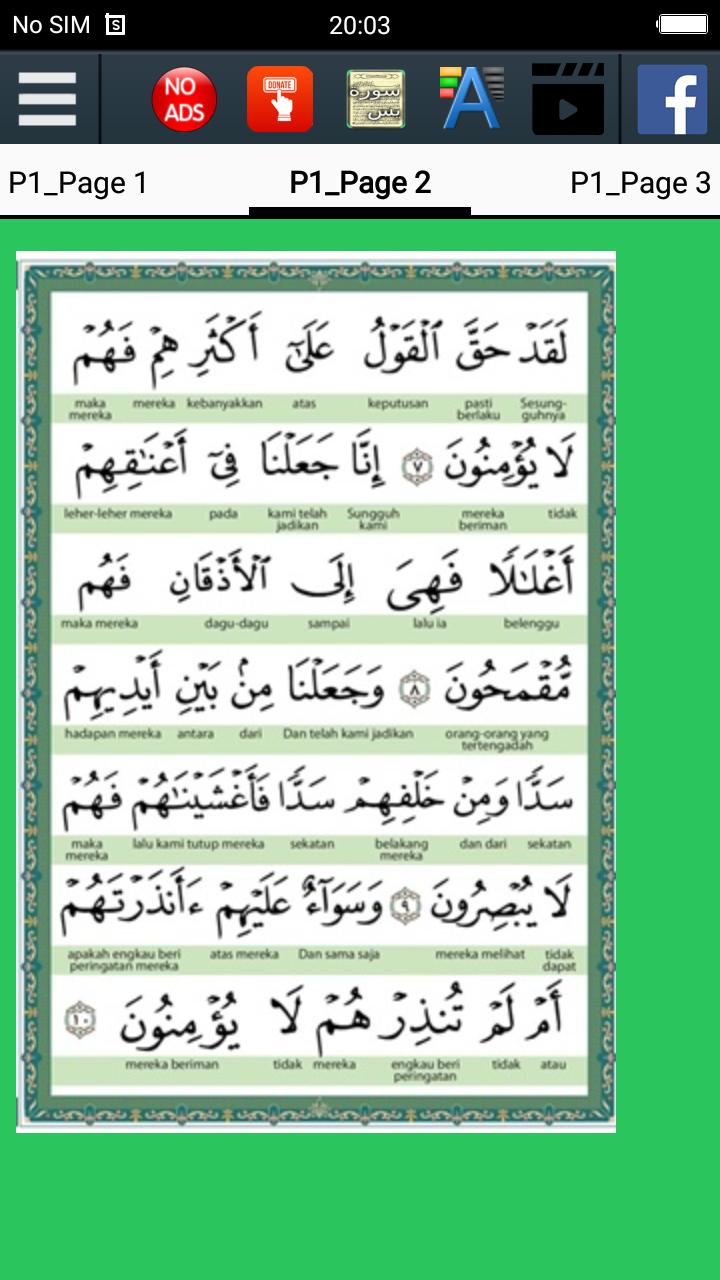 No SIM S 20:03
NO ADS DONATE سورة يس A f
P1_Page 1 P1_Page 2 P1_Page 3
لَقَدْ حَقَّ ٱلْقَوْلُ عَلَىٰٓ أَكْثَرِ هِمْ فَهُمْ
Sesung-guhnya pasti berlaku keputusan atas kebanyakkan mereka maka mereka
لَا يُؤْمِنُونَ ٧ إِنَّا جَعَلْنَا فِىٓ أَعْنَـٰقِهِمْ
tidak mereka beriman Sungguh kami kami telah jadikan pada leher-leher mereka
أَغْلَـٰلًا فَهِىَ إِلَى ٱلْأَذْقَانِ فَهُم
belenggu lalu ia sampai dagu-dagu maka mereka
مُّقْمَحُونَ ٨ وَجَعَلْنَا مِنۢ بَيْنِ أَيْدِيهِمْ
orang-orang yang tertengadah Dan telah kami jadikan dari antara hadapan mereka
سَدًّا وَمِنْ خَلْفِهِمْ سَدًّا فَأَغْشَيْنَـٰهُمْ فَهُمْ
sekatan dan dari belakang mereka sekatan lalu kami tutup mereka maka mereka
لَا يُبْصِرُونَ ٩ وَسَوَآءٌ عَلَيْهِمْ ءَأَنذَرْتَهُمْ
tidak dapat mereka melihat Dan sama saja atas mereka apakah engkau beri peringatan mereka
أَمْ لَمْ تُنذِرْ هُمْ لَا يُؤْمِنُونَ ١٠
atau tidak engkau beri peringatan mereka tidak mereka beriman